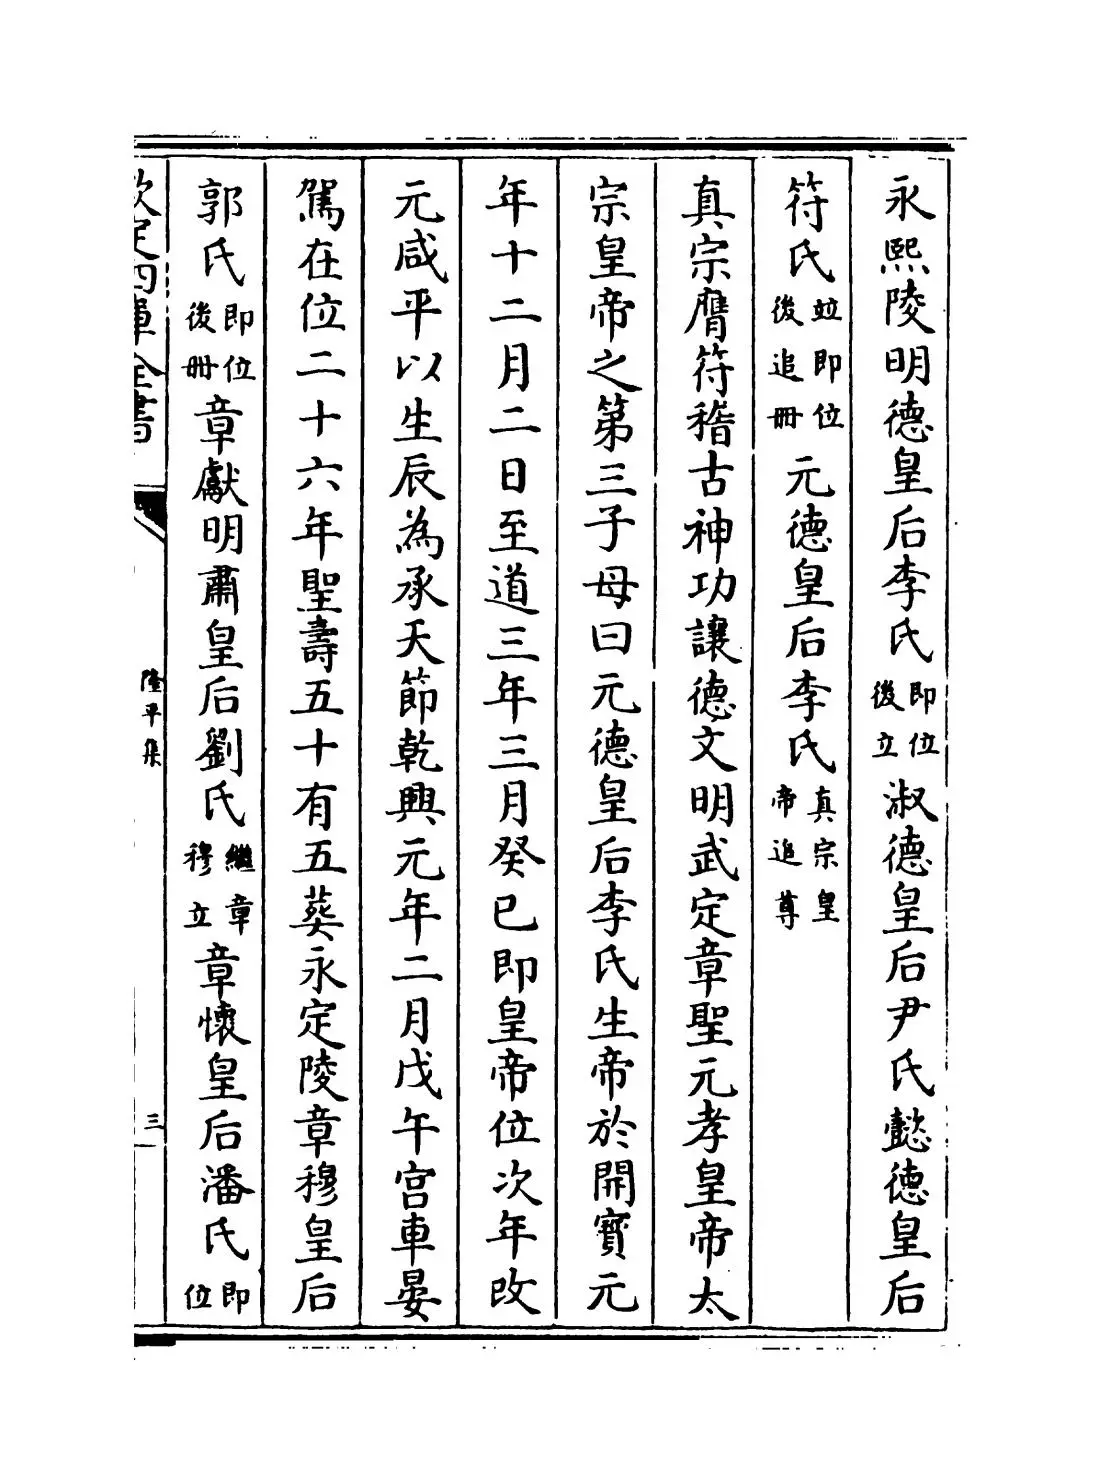 永熙陵明德皇后李氏即位後立淑德皇后尹氏懿德皇后
符氏竝即位後追冊元德皇后李氏真宗皇帝追尊
真宗膺符稽古神功讓德文明武定章聖元孝皇帝太
宗皇帝之第三子母曰元德皇后李氏生帝於開寶元
年十二月二日至道三年三月癸巳即皇帝位次年改
元咸平以生辰為承天節乾興元年二月戊午宮車晏
駕在位二十六年聖壽五十有五葬永定陵章穆皇后
郭氏即位後冊章獻明肅皇后劉氏繼章穆立章懷皇后潘氏即位
欽定四庫全書
隆平集
三